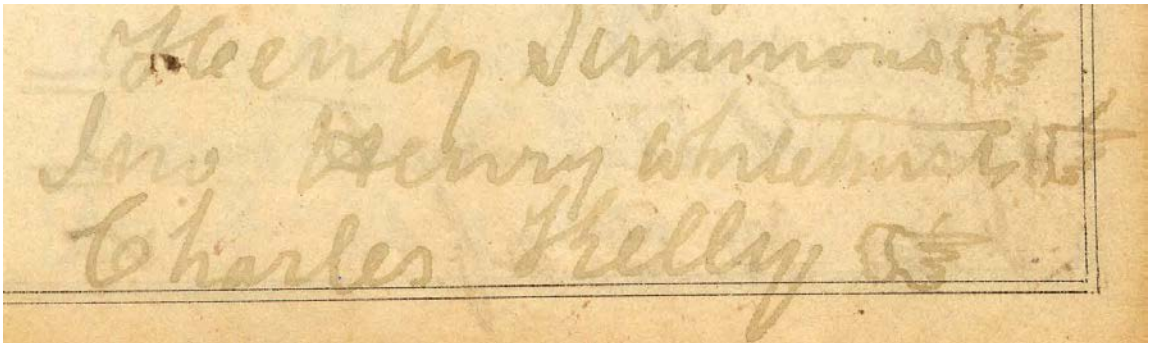 Henry Simmons ☞
Jno Henry Whitehurst ☞
Charles Kelly ☞